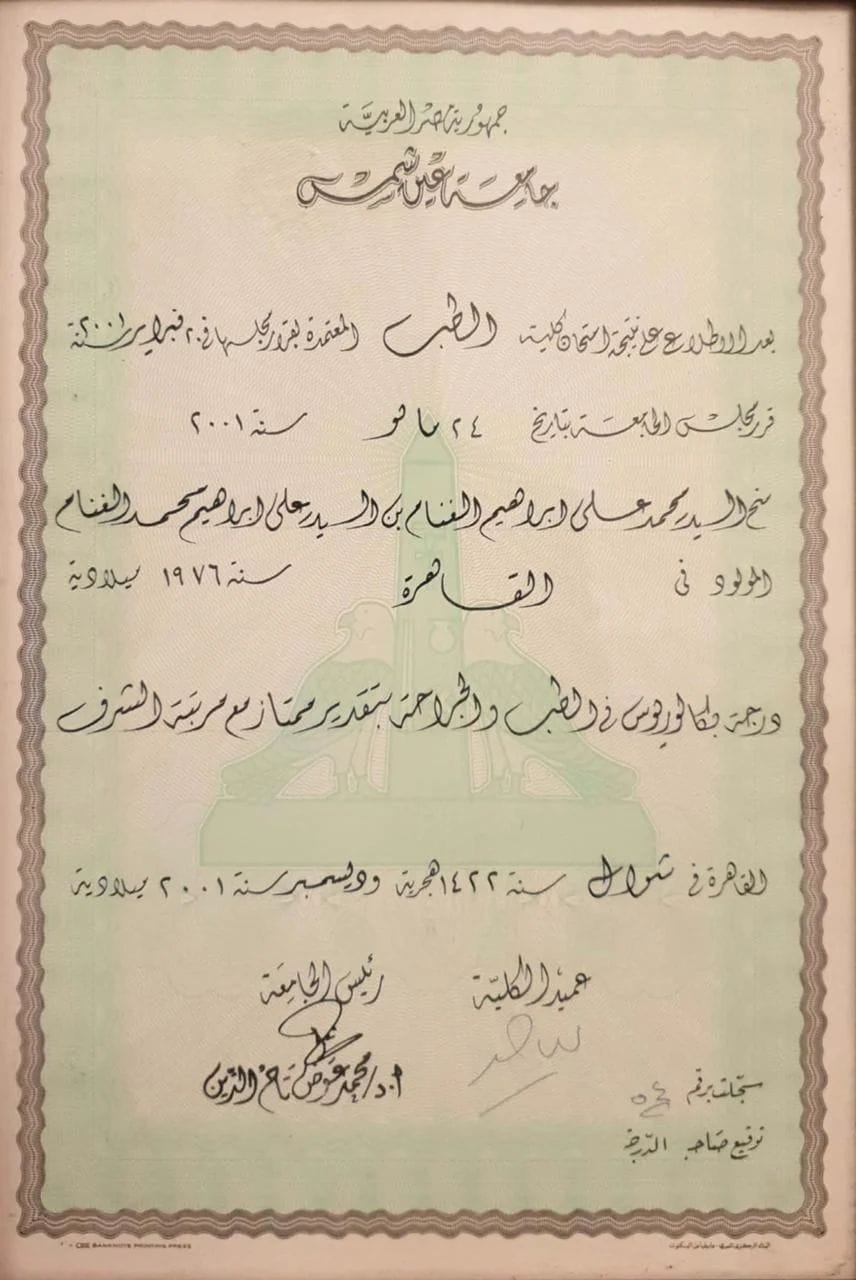 جمهورية مصر العربية
جامعة عين شمس
بعد الاطلاع على نتيجة امتحان كلية الطب المعتمدة بقرار مجلسها في ٢٠ فبراير سنة ٢٠٠١
قرر مجلس الجامعة بتاريخ ٢٤ مايو سنة ٢٠٠١
منح السيد محمد على ابراهيم الغنام بن السيد على ابراهيم محمد الغنام
المولود فى القاهرة سنة ١٩٧٦ ميلادية
درجة بكالوريوس في الطب والجراحة بتقدير ممتاز مع مرتبة الشرف
القاهرة في شوال سنة ١٤٢٢ هجرية وديسمبر سنة ٢٠٠١ ميلادية
عميد الكلية رئيس الجامعة
أ.د/محمد عوض تاج الدين
سجلت برقم
توقيع صاحب الدرجة
CBE BANKNOTE PRINTING PRESS